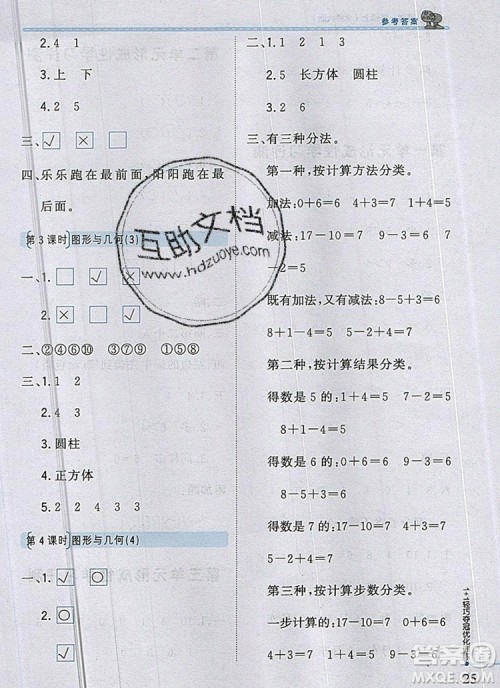 参考答案
2. 4 1
3. 上 下
4. 2 5
三、☑ ☒ ☐
四、乐乐跑在最前面，阳阳跑在最
后面。
第3课时 图形与几何(3)
一、1. ☐ ☑ ☒
2. ☒ ☐ ☑
二、②④⑥⑩ ③⑦⑨ ①⑤⑧
三、1. 1 2
2. 4
3. 圆柱
4. 正方体
5. 2 2 4 3 3
第4课时 图形与几何(4)
一、1. ☑ ○
2. ○
☑
二、1. ① 2 1 3
2. 5 长方体 圆柱
3. 2 6
三、有三种分法。
第一种，按计算方法分类。
加法：0+6=6 1+4=5
减法：17-10=7 9-3=6 7
-2=5
既有加法，又有减法：8-5+3=6
8+1-4=5 4+3-2=5
第二种，按计算结果分类。
得数是5的：1+4=5 7-2=5
8+1-4=5 4+3-2=5
得数是6的：0+6=6 9-3=6
8-5+3=6
得数是7的：17-10=7
第三种，按计算步数分类。
一步计算的：17-10=7 0+6=6
1+4=5 9-3=6 7-2=5
两步计算的：8-5+3=6 8+1-4=5
4+3-2=5
1+1轻巧夺冠优化
25
互助文档
www.hdzuoye.com
答案圈
MXQE.COM